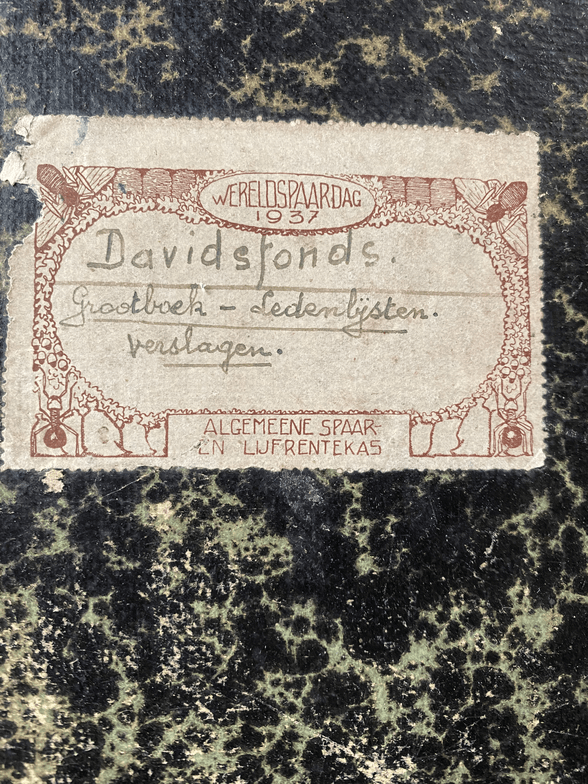 WERELDSPAARDAG
1937
Davidsfonds.
Grootboek - Ledenlijsten.
verslagen.
ALGEMEENE SPAAR-
EN LIJFRENTEKAS